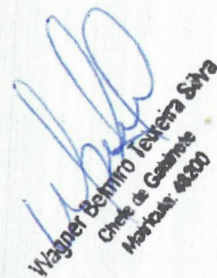 Wagner Belmiro Teixeira Silva
Chefe de Gabinete
Matrícula: 48200